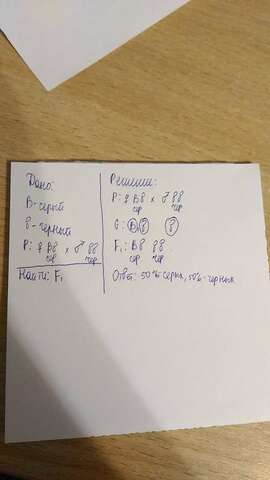 Дано:
B-серый
b-черный
P: ♀ Bb x ♂ bb
сер. чер.
Найти: F₁
Решение:
P: ♀ Bb x ♂ bb
сер. чер.
G: B b b
F₁: Bb bb
сер. чер.
Ответ: 50%-серых, 50%-черных